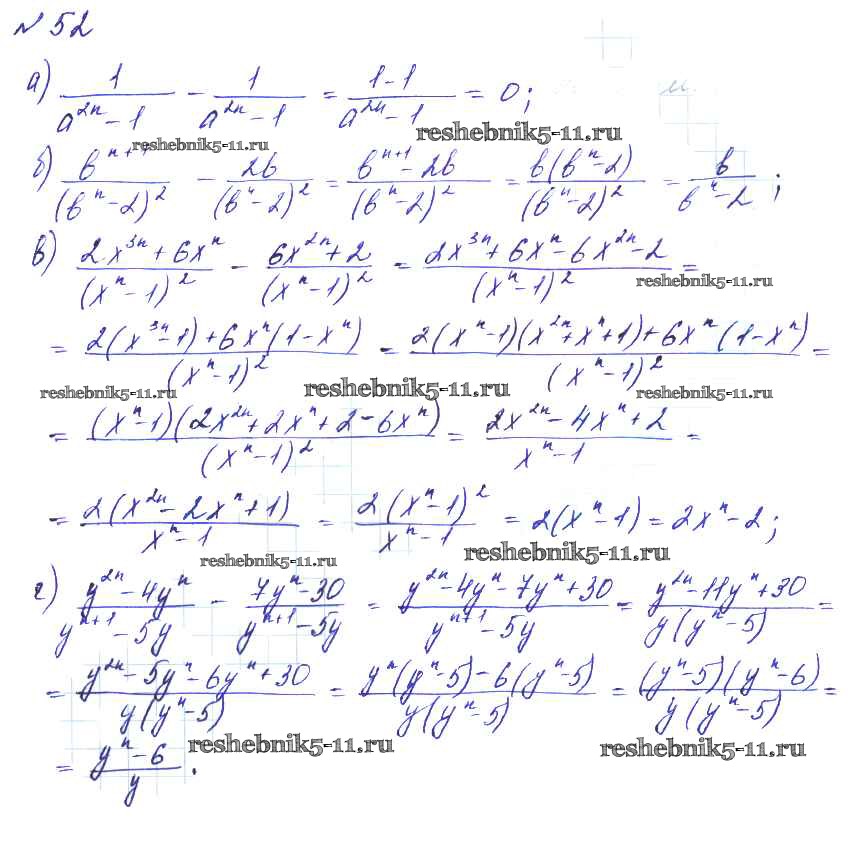 № 52
а) 1/(a^{2n} - 1) - 1/(a^{2n} - 1) = (1-1)/(a^{2n} - 1) = 0;
reshebnik5-11.ru
reshebnik5-11.ru
б) b^{n+1}/(b^n - 2)^2 - 2b/(b^n - 2)^2 = (b^{n+1} - 2b)/(b^n - 2)^2 = b(b^n - 2)/(b^n - 2)^2 = b/(b^n - 2);
в) (2x^{3n} + 6x^n)/(x^n - 1)^2 - (6x^{2n} + 2)/(x^n - 1)^2 = (2x^{3n} + 6x^n - 6x^{2n} - 2)/(x^n - 1)^2 =
reshebnik5-11.ru
= (2(x^{3n} - 1) + 6x^n(1 - x^n))/(x^n - 1)^2 = (2(x^n - 1)(x^{2n} + x^n + 1) + 6x^n(1 - x^n))/(x^n - 1)^2 =
reshebnik5-11.ru reshebnik5-11.ru reshebnik5-11.ru
= (x^n - 1)(2x^{2n} + 2x^n + 2 - 6x^n)/(x^n - 1)^2 = (2x^{2n} - 4x^n + 2)/(x^n - 1) =
= 2(x^{2n} - 2x^n + 1)/(x^n - 1) = 2(x^n - 1)^2/(x^n - 1) = 2(x^n - 1) = 2x^n - 2;
reshebnik5-11.ru reshebnik5-11.ru
г) (y^{2n} - 4y^n)/(y^{n+1} - 5y) - (7y^n - 30)/(y^{n+1} - 5y) = (y^{2n} - 4y^n - 7y^n + 30)/(y^{n+1} - 5y) = (y^{2n} - 11y^n + 30)/(y(y^n - 5)) =
= (y^{2n} - 5y^n - 6y^n + 30)/(y(y^n - 5)) = (y^n(y^n - 5) - 6(y^n - 5))/(y(y^n - 5)) = (y^n - 5)(y^n - 6)/(y(y^n - 5)) =
reshebnik5-11.ru reshebnik5-11.ru
= (y^n - 6)/y.